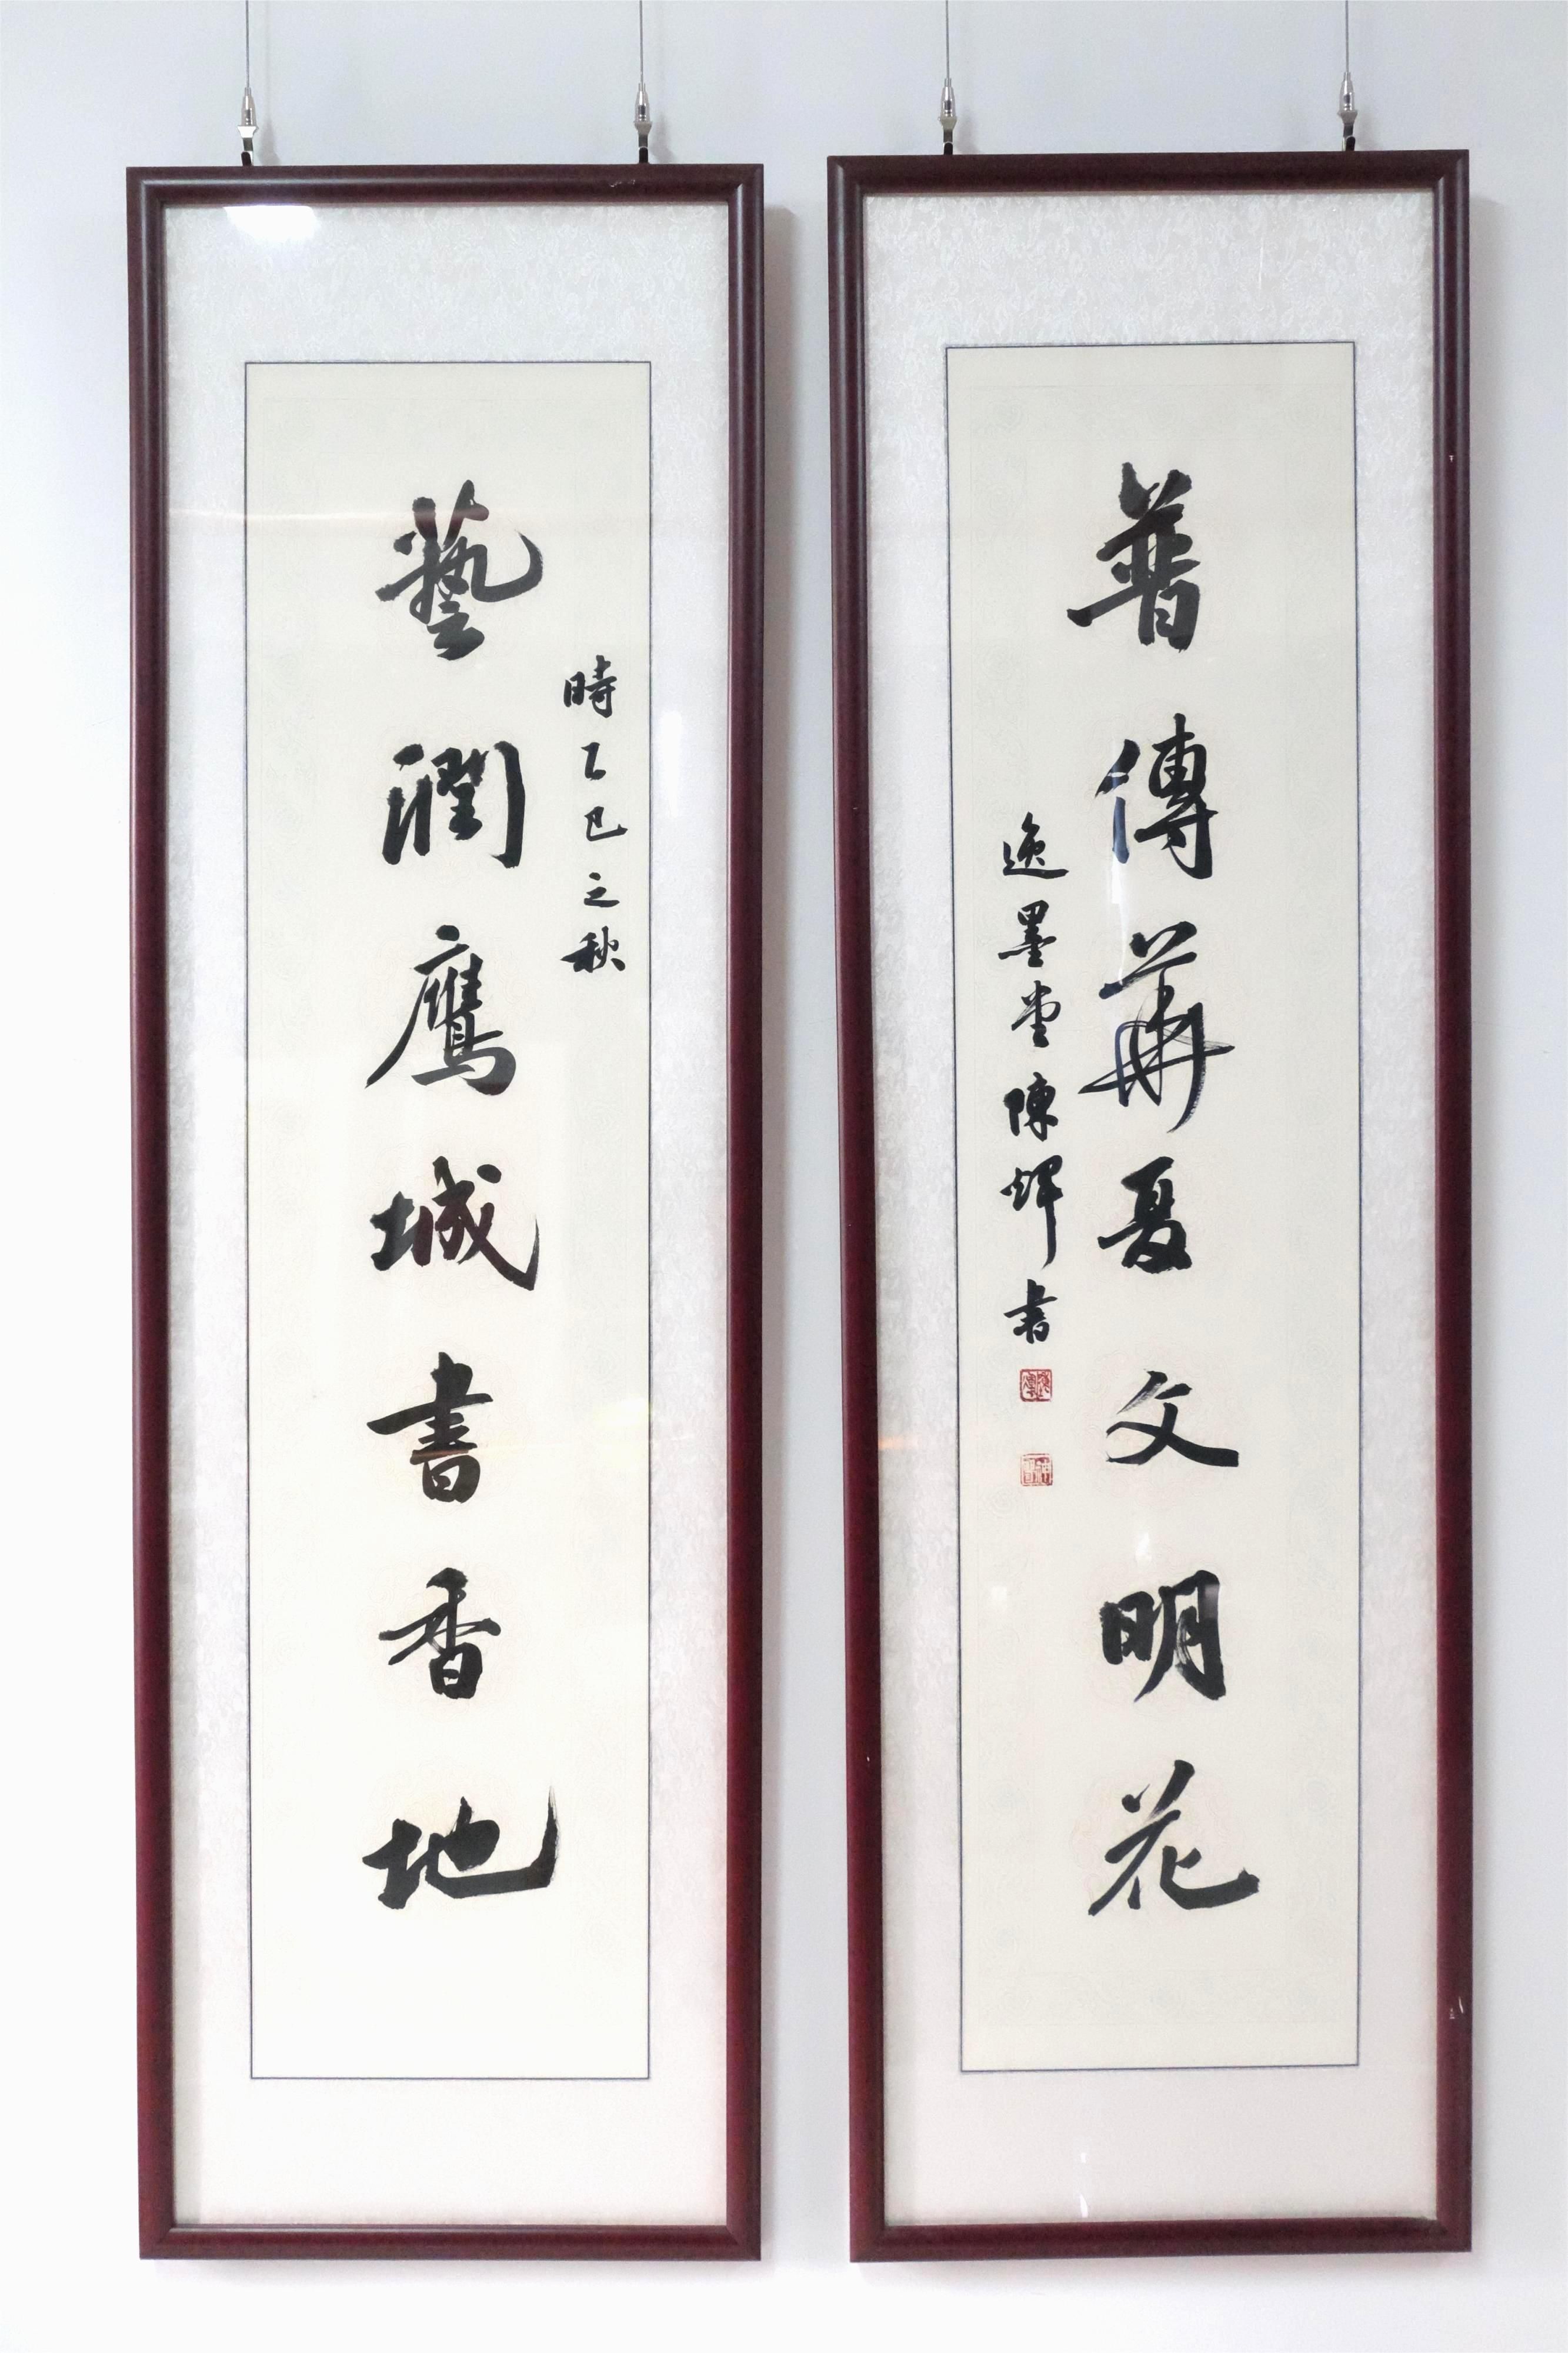 藝潤鹰城書香地
時乙巳之秋
普傳華夏文明花
逸墨堂陳輝书